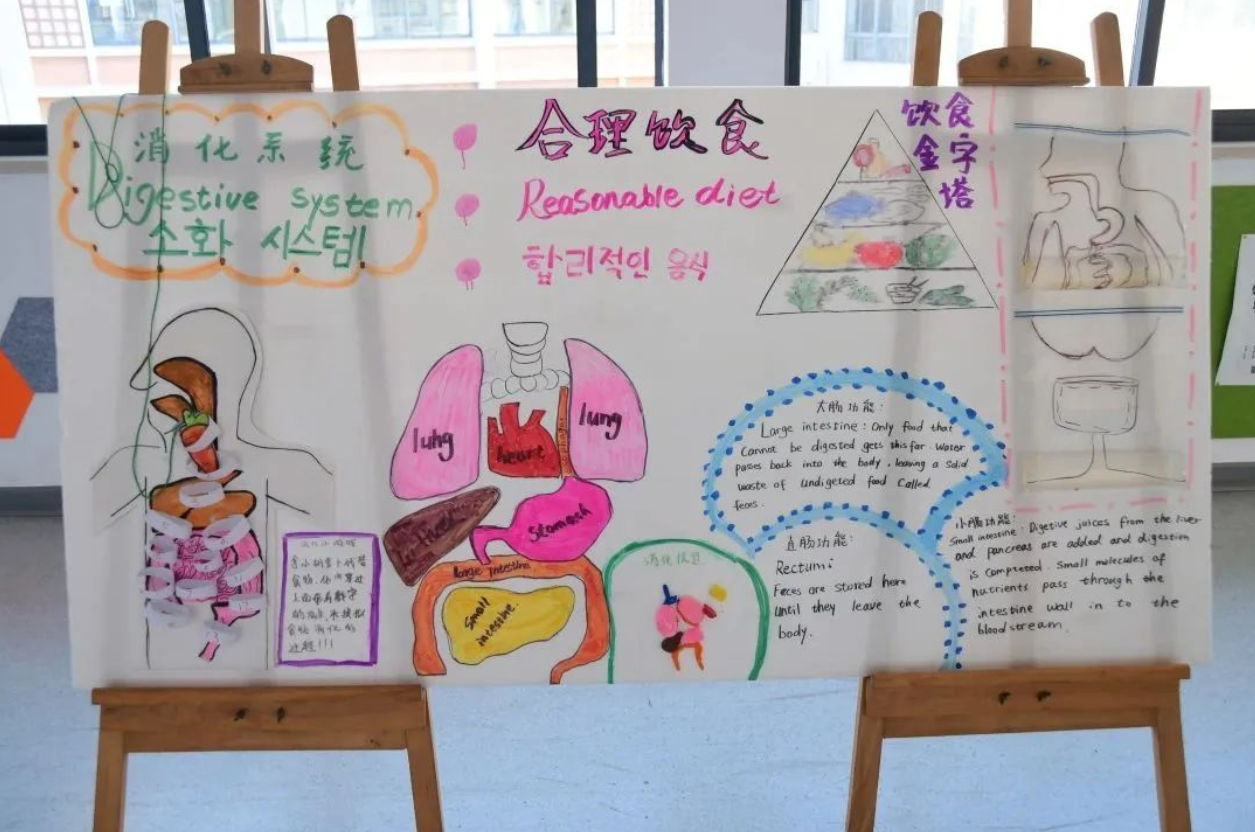 消化系统
Digestive system
소화 시스템
合理饮食
Reasonable diet
합리적인 음식
饮食
金字
塔
lung
lung
heart
Stomach
large intestine
Small
intestine.
大肠功能:
Large intestine: Only food that
Cannot be digested gets this far. Water
passes back into the body, leaving a Solid
waste of undigeted food Called
feces.
直肠功能:
Rectum:
Feces are stored here
until they leave the
body.
小肠功能:
Small intestine: Digetive juices from the liver
and pancreas are added and digestion
is completed. Small molecules of
nutrients pass through the
intestine wall in to the
bloodstream.